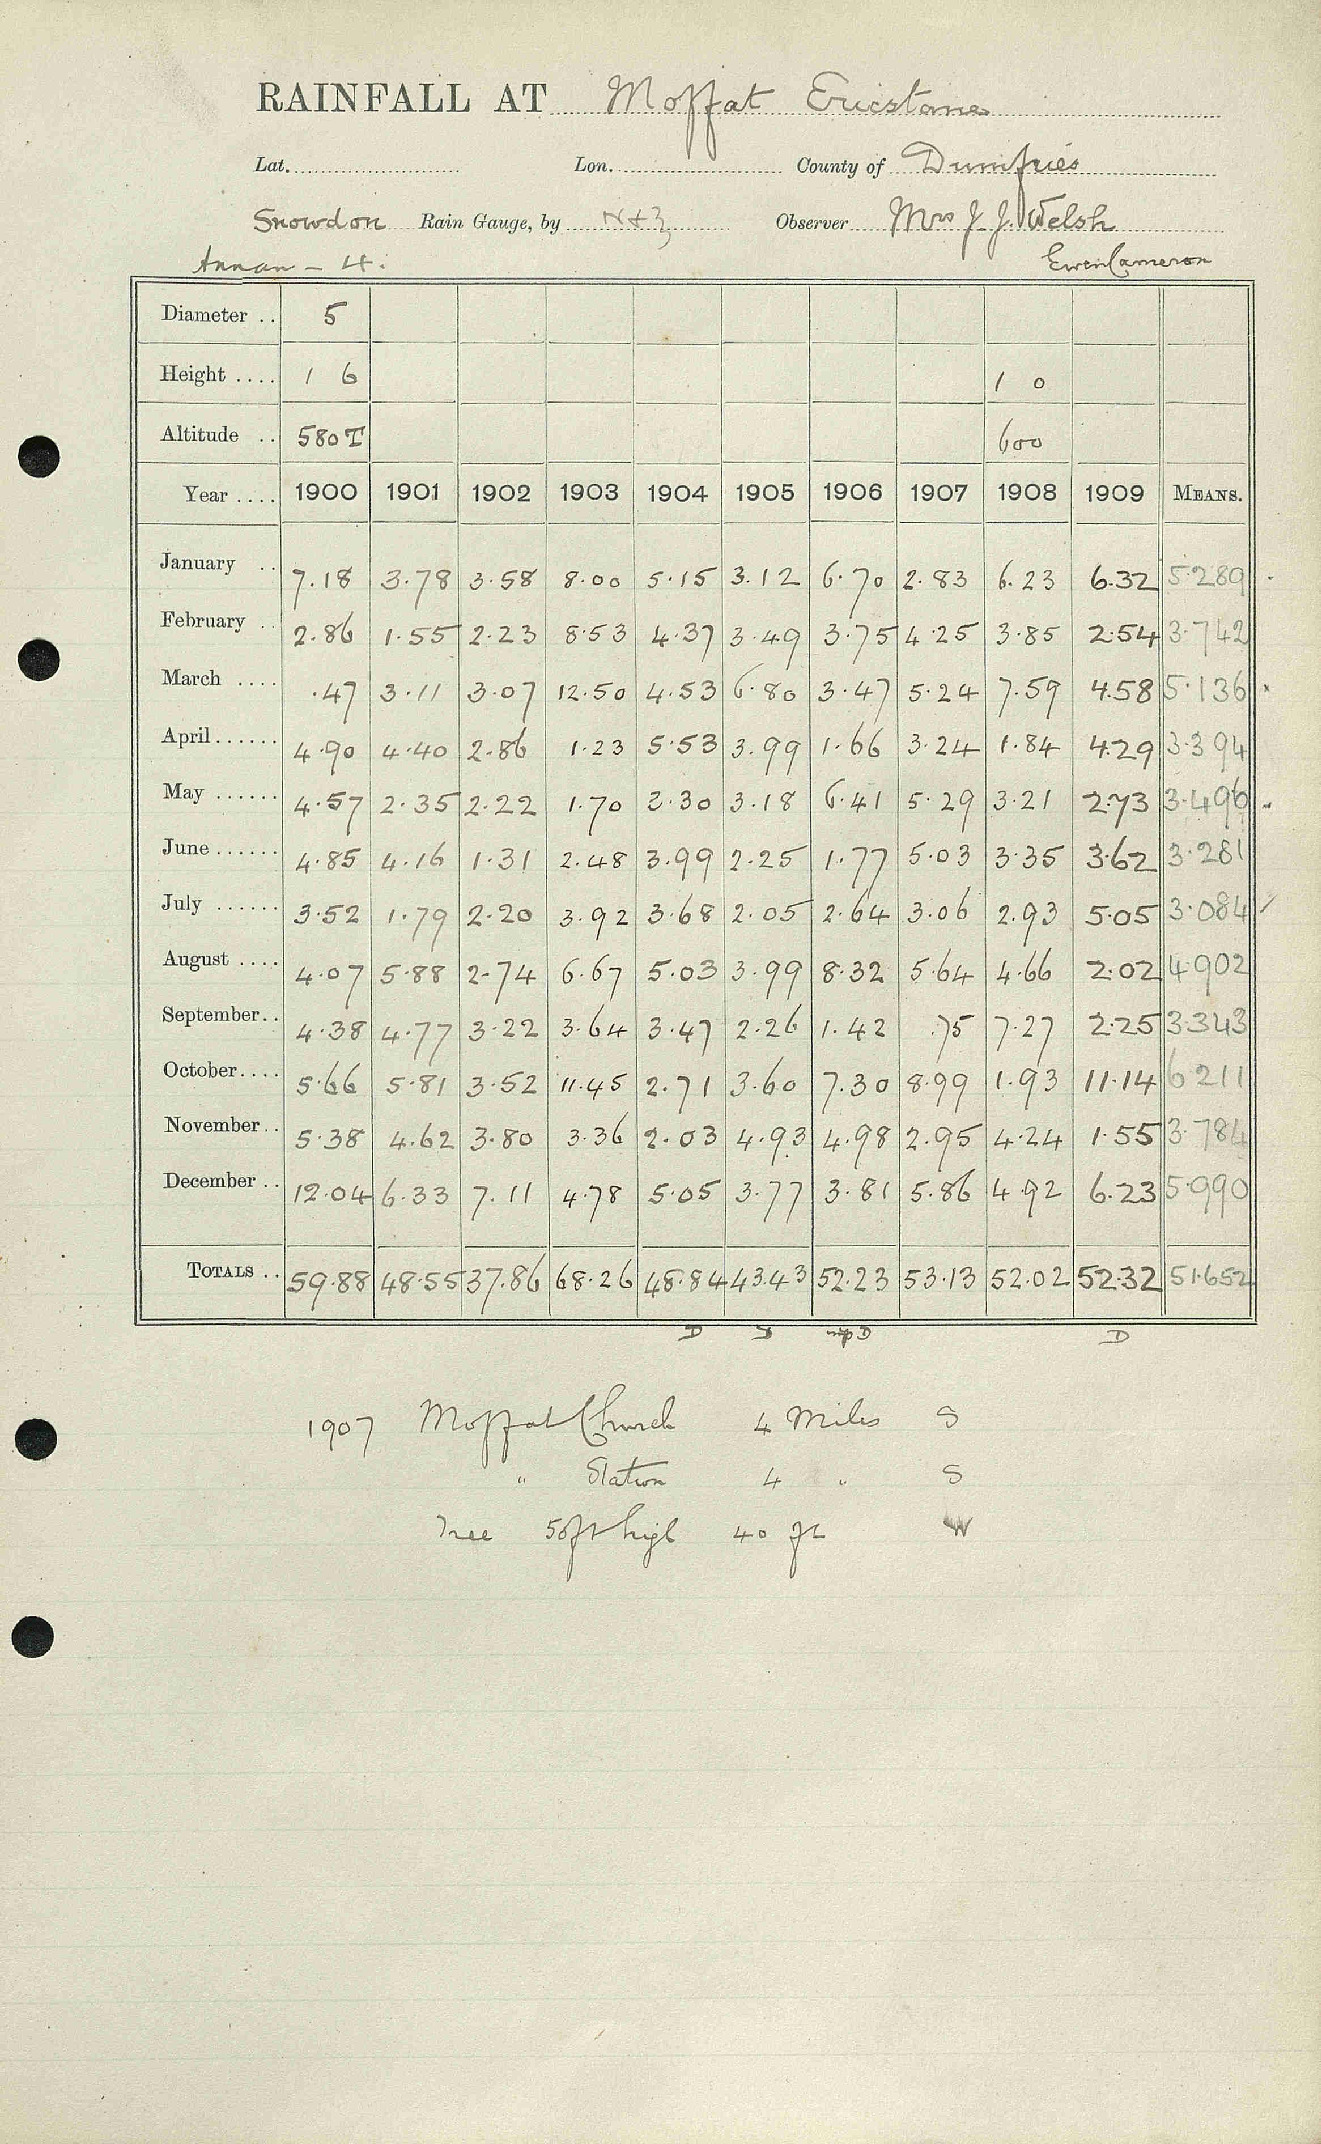 RAINFALL AT Moffat Ericstane
Lat. Lon. County of Dumfries
Snowdon Rain Gauge, by N+Z Observer Mrs J. J. Welsh
Annan - 4. Ewen Cameron
Diameter .. 5
Height .... 1 6 1 0
Altitude .. 580 T 600
Year .... 1900 1901 1902 1903 1904 1905 1906 1907 1908 1909 MEANS.
January .. 7.18 3.78 3.58 8.00 5.15 3.12 6.70 2.83 6.23 6.32 5.289
February .. 2.86 1.55 2.23 8.53 4.37 3.49 3.75 4.25 3.85 2.54 3.742
March .... .47 3.11 3.07 12.50 4.53 6.80 3.47 5.24 7.59 4.58 5.136
April...... 4.90 4.40 2.86 1.23 5.53 3.99 1.66 3.24 1.84 4.29 3.394
May ...... 4.57 2.35 2.22 1.70 3.30 3.18 6.41 5.29 3.21 2.73 3.496
June ...... 4.85 4.16 1.31 2.48 3.99 2.25 1.77 5.03 3.35 3.62 3.281
July ...... 3.52 1.79 2.20 3.92 3.68 2.05 2.64 3.06 2.93 5.05 3.084
August .... 4.07 5.88 2.74 6.67 5.03 3.99 8.32 5.64 4.66 2.02 4.902
September.. 4.38 4.77 3.22 3.64 3.47 2.26 1.42 .75 7.27 2.25 3.343
October.... 5.66 5.81 3.52 11.45 2.71 3.60 7.30 8.99 1.93 11.14 6.211
November.. 5.38 4.62 3.80 3.36 2.03 4.93 4.98 2.95 4.24 1.55 3.784
December .. 12.04 6.33 7.11 4.78 5.05 3.77 3.81 5.86 4.92 6.23 5.990
TOTALS .. 59.88 48.55 37.86 68.26 48.84 43.43 52.23 53.13 52.02 52.32 51.652
D D D D
1907 Moffat Church 4 Miles S
" Station 4 " S
Tree 50ft high 40 ft W